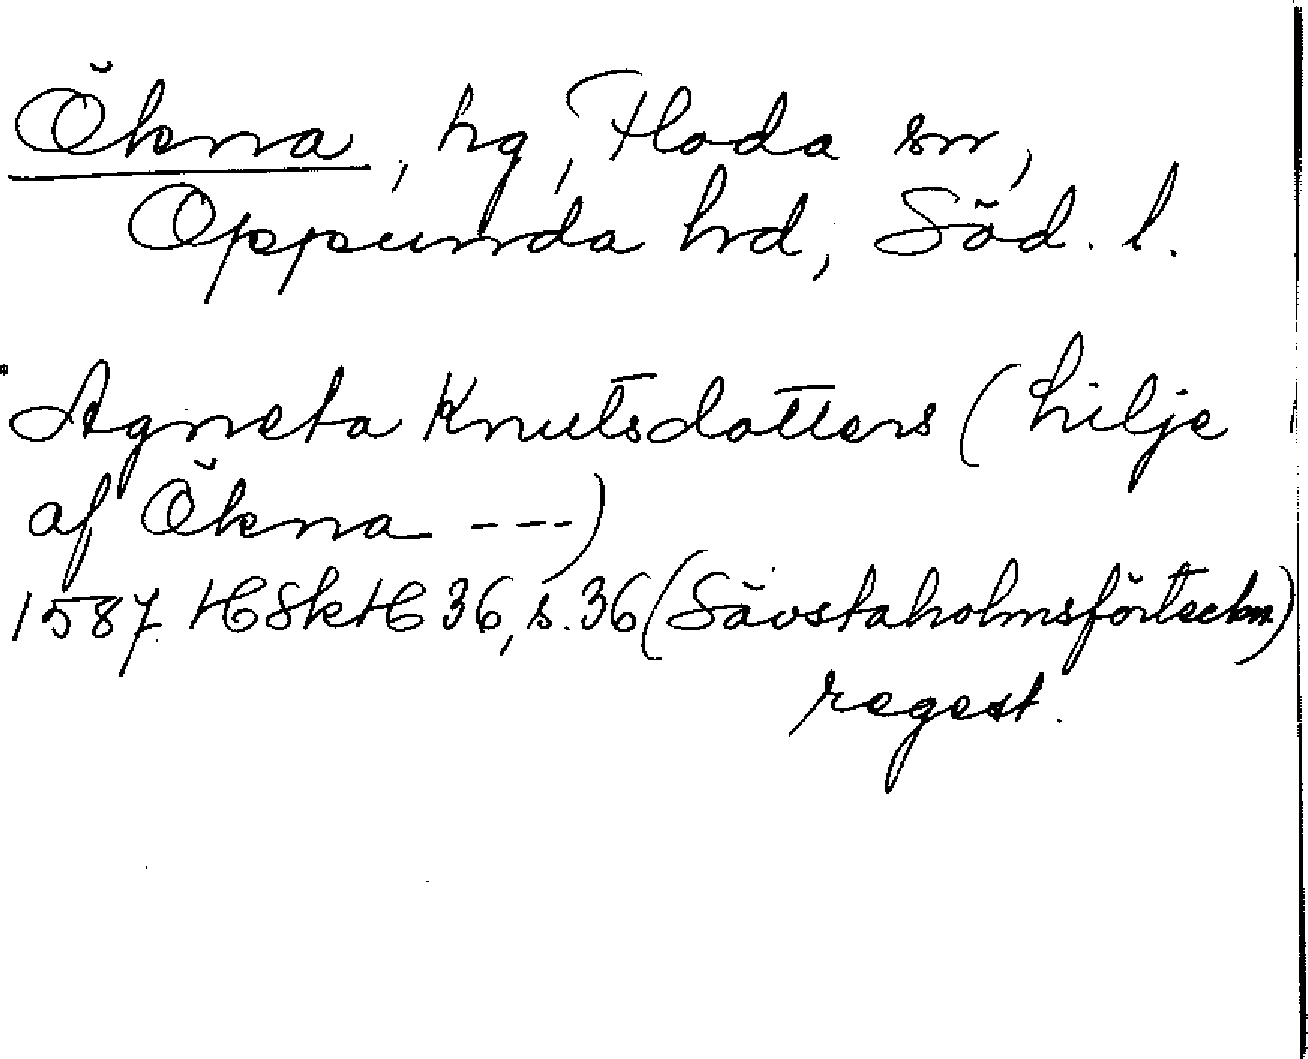 Ökna, hg, Floda sn,
Oppunda hd, Söd. l.
Agneta Knutsdotters (Lilje
af Ökna ---)
1587. HSkH 36, s. 36 (Sävstaholmsförteckn.)
regest.